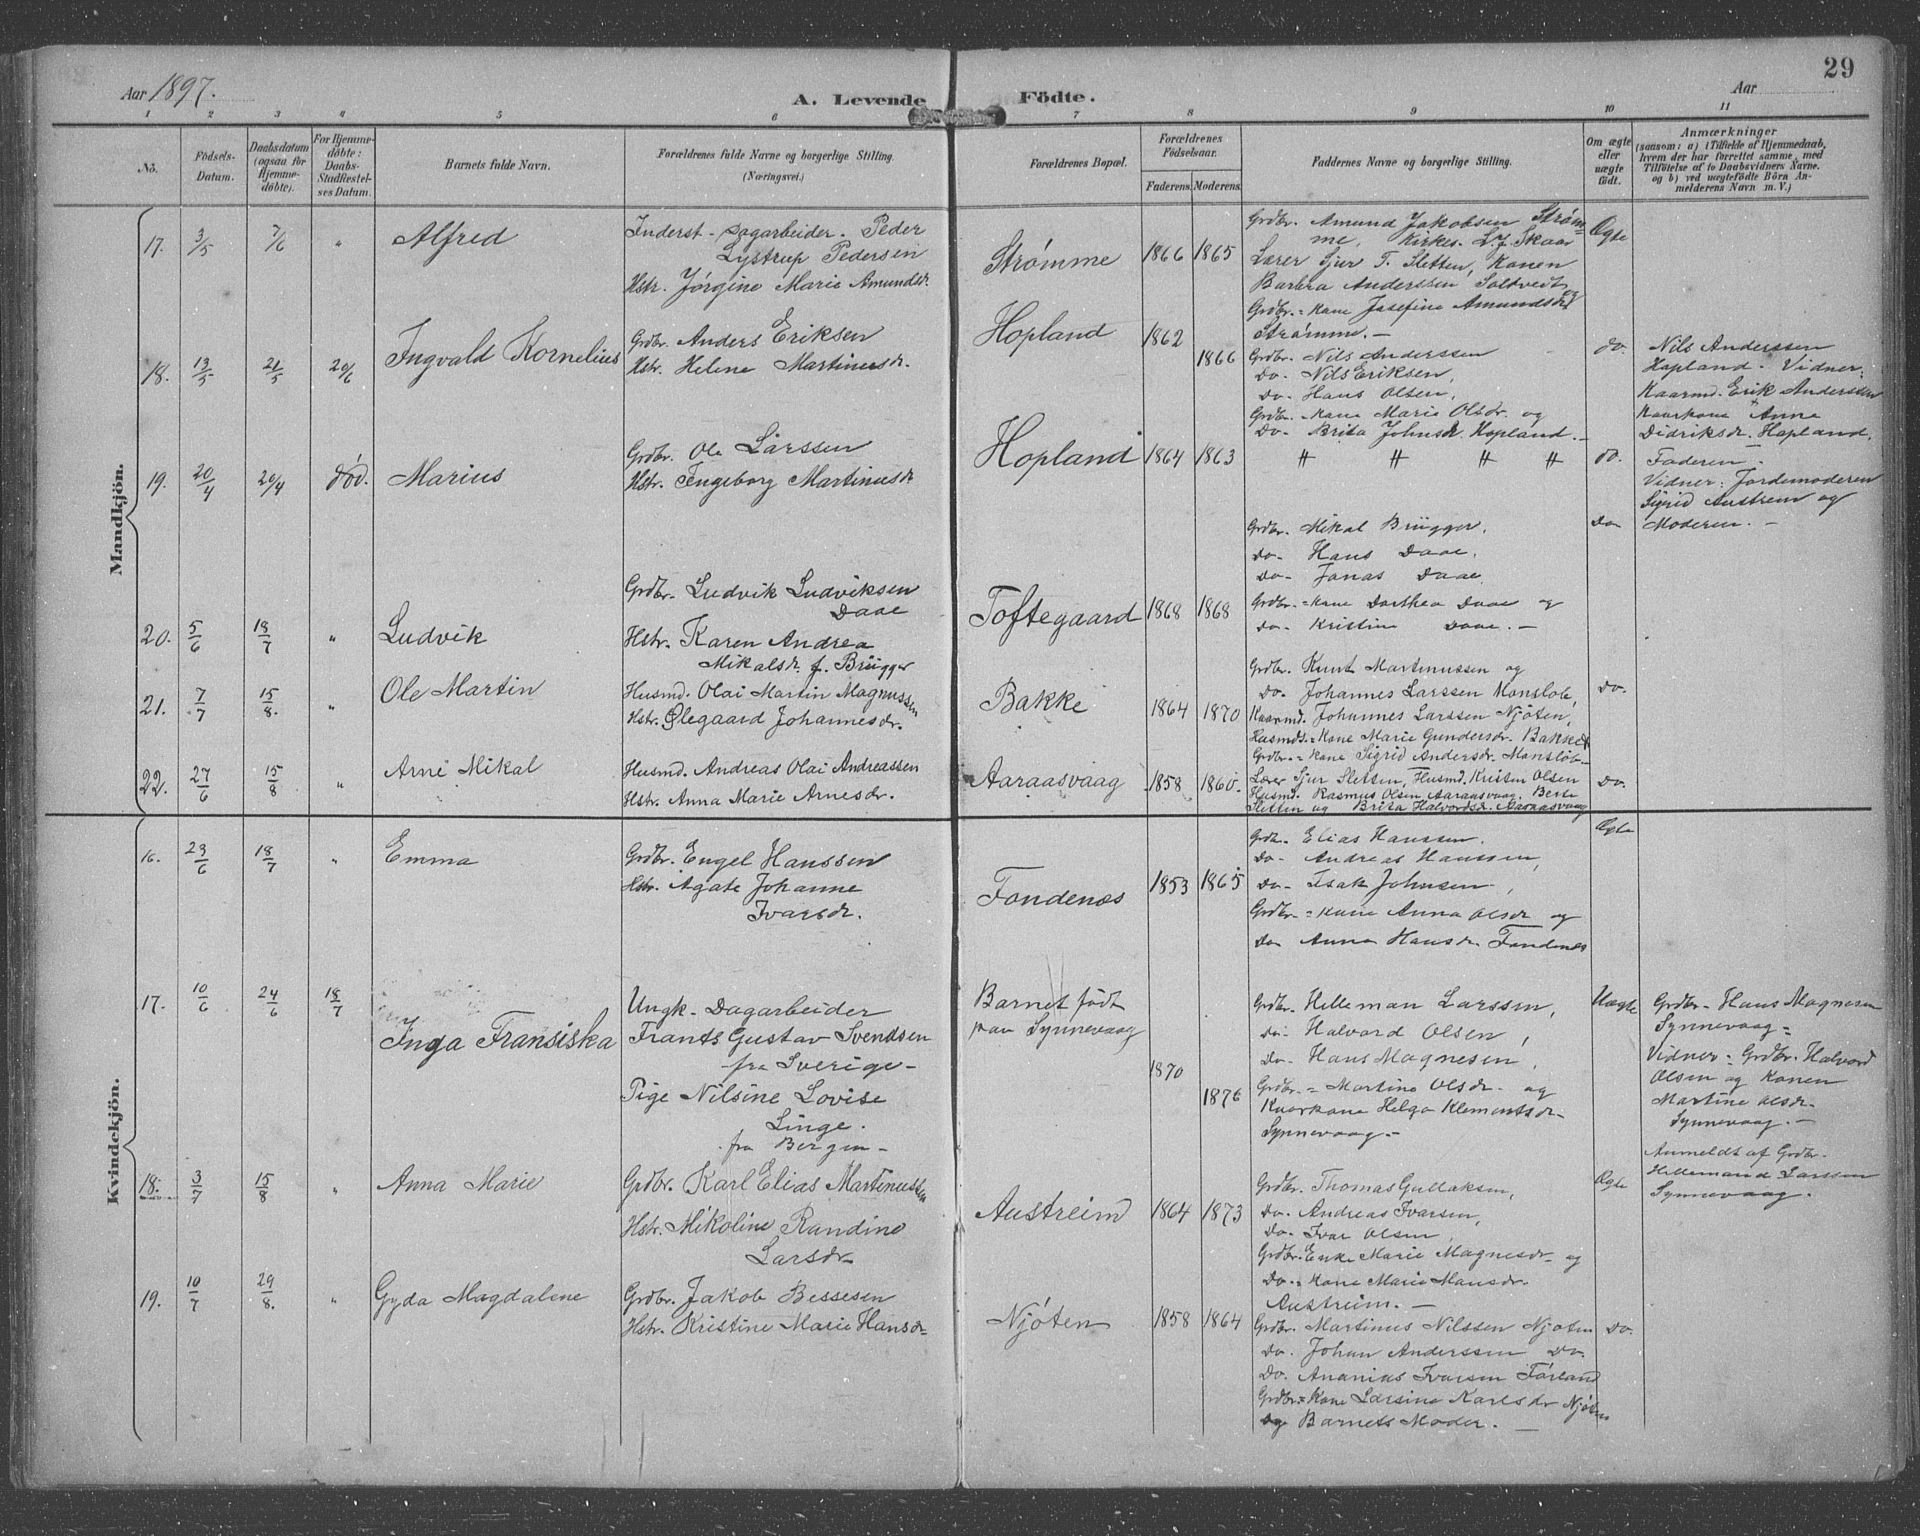 29
Aar 1897.
A. Levende Födte.
Aar
1 2 3 4 5 6 7 8 9 10 11
No.
Födsels-
Datum.
Daabsdatum
(ogsaa for
Hjemme-
döbte).
For Hjemme-
döbte:
Daabs-
Stadfæstel-
ses Datum.
Barnets fulde Navn.
Forældrenes fulde Navne og borgerlige Stilling.
(Næringsvei.)
Forældrenes Bopæl.
Forældrenes
Födselsaar.
Faderens. Moderens.
Faddernes Navne og borgerlige Stilling.
Om ægte
eller
uægte
födt.
Anmærkninger
(saasom: a) i Tilfælde af Hjemmedaab,
hvem der har forrettet samme, med
Tilföielse af to Daabsvidners Navne.
og b) ved uægtefödte Börn An-
melderens Navn m. V.)
Mandkjön.
17. 3/5 7/6 " Alfred
Inderst - Dagarbeider. Peder
Lystrup Pedersen
Hstr. Jørgine Marie Amundsdr.
Strømme 1866 1865
Grdbr. Amund Jakobsen Strøm-
me, Kirkes. L. J. Skaar
Lærer Sjur T. Sletten, Konen
Barbra Anderssen Soltvedt og
Grdbr.=Kone Josefine Amundsdr
Strømme.-
Ægte
18. 13/5 21/5 20/6 Ingvald Kornelius
Grdbr. Anders Eriksen
Hstr. Helene Martinusdr.
Hopland 1862 1866
Grdbr. Nils Anderssen
Do- Nils Eriksen,
Do- Hans Olsen,
Grdbr.-Kone Marie Olsdr. og
Do- Brita Johnsdr. Hopland.-
do.
Nils Anderssen
Hopland. Vidner:
Kaarmd. Erik Anderssen
Kaarkone Anna
Didriksdr. Hopland.
19. 20/4 20/4 død. Marius
Grdbr. Ole Larssen
Hstr. Ingeborg Martinusdr
Hopland 1864 1863
" " " "
do.
Faderen.
Vidner: Jordemoderen
Sigrid Austrem og
Moderen.-
20. 5/6 18/7 " Ludvik
Grdbr. Ludvik Ludviksen
Daae
Hstr. Karen Andrea
Mikalsdr. f. Brügger
Toftegaard 1868 1868
Grdbr. Mikal Brügger.
Do- Hans Daae.
Do- Jonas Daae.
Grdbr.=Kone Dorthea Daae og
Do- Kristine Daae.-
Do-
21. 7/7 15/8. " Ole Martin
Husmd. Olai Martin Magnussen
Hstr. Olegaard Johannesdr.
Bakke 1864 1870
Grdbr. Knut Martinussen og
Do- Johannes Larssen Monsløb,
Kaarmd. Johannes Larssen Njøten,
Husmds.=Kone Marie Gundersdr. Bakke
Grdbr.=Kone Sigrid Andersdr. Monsløb-
Do.
22. 27/6 15/8 " Arne Mikal
Husmd. Andreas Olai Andreassen
Hstr. Anna Marie Arnesdr.
Aaraasvaag 1858 1860.
Lærer Sjur Sletten, Husmd. Kristen Olsen
Husmd. Rasmus Olsen Aaraasvaag, Berte
Sletten og Brita Halvordsdr. Aaraasvaag
Do.
Kvindekjön.
16. 23/6 18/7 " Emma
Grdbr. Engel Hanssen
Hstr. Agate Johanne
Ivarsdr.
Fondenæs 1853 1865
Grdbr. Elias Hanssen.
Do- Andreas Hanssen,
Do- Isak Johnsen.,
Grdbr.=Kone Anna Olsdr og
Do Anna Hansdr. Fondenes
Ægte
17. 10/6 24/6 18/7 Inga Fransiska
Ungk- Dagarbeider
Frants Gustav Svendsen
fra Sverige-
Pige Nilsine Lovise
Linge.
fra Bergen-
Barnet født
paa Synnevaag
1870 1876
Grdbr. Helleman Larssen,
Do- Halvord Olsen,
Do- Hans Magnesen,
Grdbr.= Martine Olsdr. og
Kaarkone Helga Klementsdr-
Synnevaag.-
Uægte
Grdbr- Hans Magnesen
Synnevaag=
Vidner: Grdbr. Halvord
Olsen og Konen
Martine Olsdr.
Synnevaag.-
Anmeldt af Grdbr.
Hellemand Larssen
Synnevaag.
18. 3/7 15/8 " Anna Marie
Grdbr. Karl Elias Martinussen
Hstr. Mikoline Randine
Larsdr
Austreim 1864 1873
Grdbr. Thomas Gullaksen,
Do- Andreas Ivarsen,
Do. Ivar Olsen,
Grdbr. Enke Marie Magnesdr- og
Do-=Kone Marie Monsdr.
Austreim.-
Ægte
19. 10/7 29/8. " Gyda Magdalene
Grdbr. Jakob Bessesen
Hstr. Kristine Marie Hansdr-
Njøten 1858 1864
Grdbr. Martinus Nilssen Njøten
Do. Johan Anderssen Do-
Do. Ananias Ivarsen Førland
Grdbr=Kone Larsine Karlsdr Njøten
og Barnets Moder.-
Do.